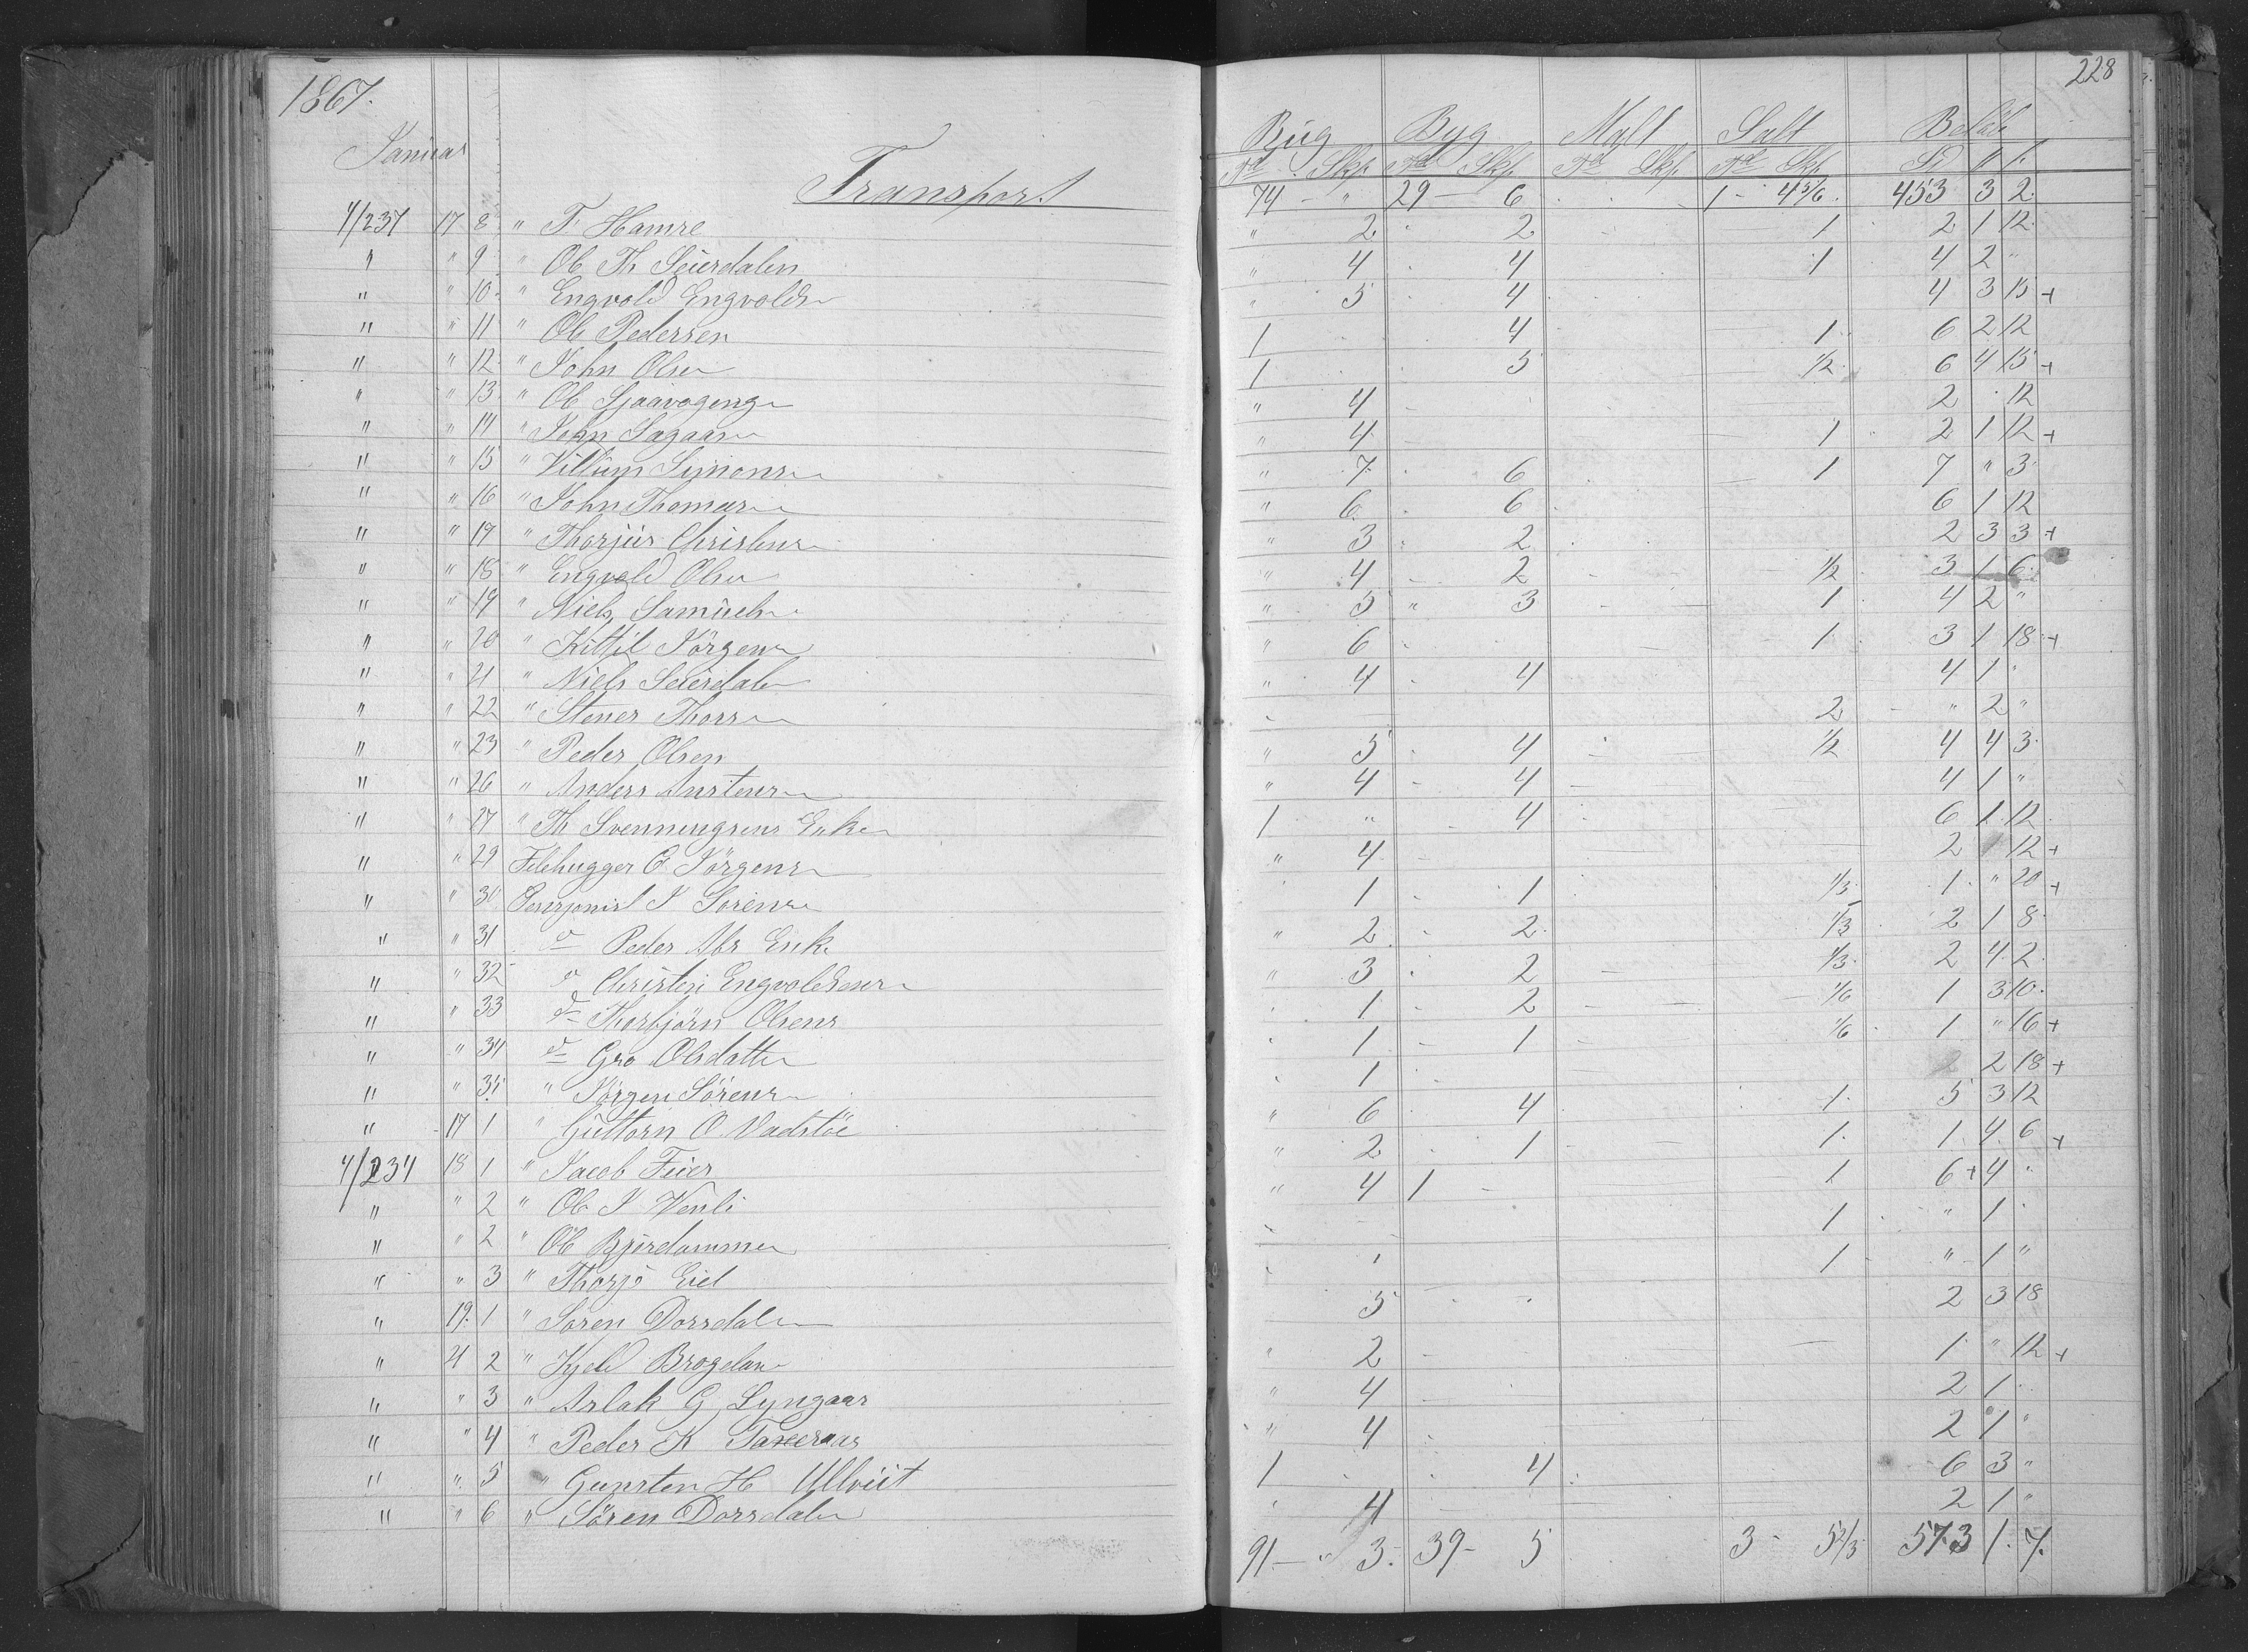 1867. 228
Januar
Rug Byg Malt Salt Beløb
Td Skp. Td Skp. Td Skp. Td Skp. Sd
Transport 74 - " 29 - 6 1 - 4 5/6 453 3 2
4/237 17 8 " T. Hamre " 2 2 1 2 1 12
" " 9 " Ole Th Seierdalen " 4 4 1 4 2 "
" " 10 " Engvold Engvolds " 5 4 4 3 15 +
" " 11 " Ole Pedersen 1 4 1 6 2 12
" " 12 " John Olsen 1 5 1/2 6 4 15 +
" " 13 " Ole " 4 2 12
" " 14 " John Sagaasen " 4 1 2 1 12 +
" " 15 " Villum Simons " 7 6 1 7 " 3
" " 16 " John Thomas " 6 6 6 1 12
" " 17 " Thorjus Christens " 3 2 2 3 3 +
" " 18 " Engvold Olsen " 4 2 1/2 3 1 6
" " 19 " Niels Samuels " 5 " 3 1 4 2 "
" " 20 " Kittil Jörgens " 6 1 3 1 18 +
" " 21 " Niels Seierdalen " 4 4 4 1
" " 22 " Stener Thors 2 " 2 "
" " 23 " Peder Olsen " 5 4 1/2 4 4 3
" " 26 " Anders Austens " 4 4 4 1 "
" " 27 " Th Svennungsens Enke 1 " 4 6 1 12
" " 29 Filehugger O Jörgens " 4 2 12 +
" " 30 Pensjonist J Sörens 1 1 1/3 1 " 20 +
" " 31 do Peder Abr Enke " 2 2 1/3 2 1 8
" " 32 do Christen Engvoldsens " 3 2 1/3 2 4 2
" " 33 do Thorbjörn Olsens 1 2 1/6 1 3 10
" " 34 do Gro Olsdatter 1 1 1/6 1 " 16 +
" " 35 " Jörgen Sörens 1 2 18 +
" 17 1 " Guttorn O. Vadstöe " 6 4 1 5 3 12
4/234 18 1 " Jacob Feier " 2 1 1 1 4 6 +
" " 2 " Ole J Venli " 4 1 - 1 6 + 4
" " 2 " Ole Bjørdammen 1 " 1
" " 3 " Thorjö Eiel 1 " 1 "
" 19 1 " Sören Dorsdalen 5 2 3 18
" 21 2 " Kjeld " 2 1 " 12 +
" " 3 " Aslak G Lyngaas " 4 2 1
" " 4 " Peder K " 4 2 1 "
" " 5 " Gunsten H Ullviit 1 4 6 3 "
" " 6 " Sören Dorsdalen 4 2 1 "
91 - " 3 39 - 5 3 - 5 2/3 573 1 7